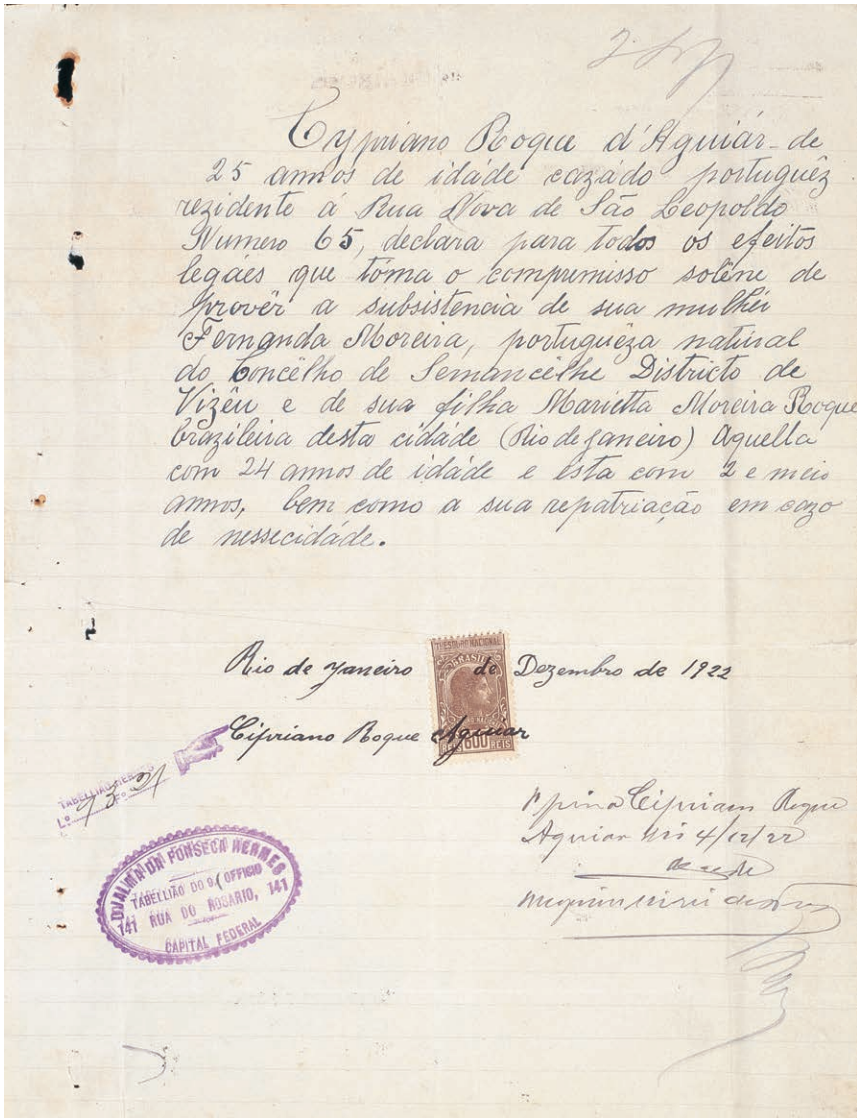 Cypriano Roque d'Aguiár - de
25 annos de idáde cazádo portuguêz
rezidente á Rua Nova de São Leopoldo
Numero 65, declara para todos os efeitos
legáes que tóma o compremisso solêne de
provêr a subsistencia de sua mulhér
Fernanda Moreira, portuguêza natural
do Concêlho de Sernancêlhe Districto de
Vizêu e de sua filha Marietta Moreira Roque
brazileira desta cidáde (Rio de Janeiro) Aquella
com 24 annos de idáde e ésta com 2 e meio
annos, bem como a sua repatriação em cazo
de nessecidáde.
THESOURO NACIONAL
BRASIL
Rio de Janeiro de Dezembro de 1922
Cipriano Roque Aguiar
600 REIS
TABELLIÃO HERMES
L.º 93 Fº 31
Cipriano Roque
Aguiar 4/12/22
DJALMA DA FONSECA HERMES
TABELLIÃO DO 9º OFFICIO
141 RUA DO ROSARIO, 141
CAPITAL FEDERAL